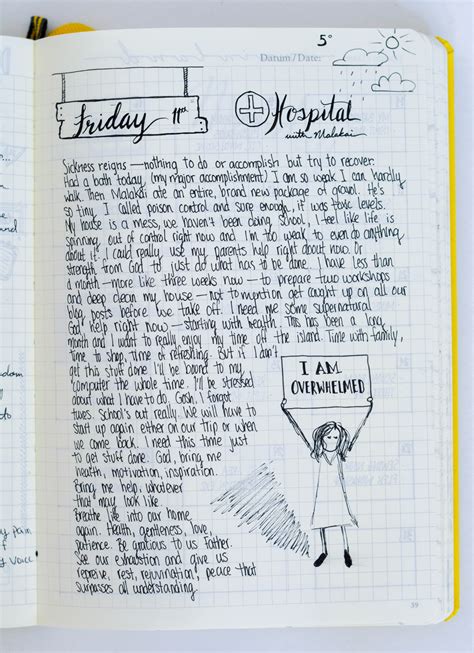 5°
Datum/Date:
Friday 11th
Hospital
with Malakai
Sickness reigns — nothing to do or accomplish but try to recover.
Had a bath today, (my major accomplishment) I am so weak I can hardly
walk. Then Malakai ate an entire, brand new package of gravol. He's
so tiny. I called poison control and sure enough, it was toxic levels.
My house is a mess, we haven't been doing school, I feel like life is
spinning out of control right now and I'm too weak to even do anything
about it. I could really use my parents help right about now. Or
strength from God to just do what has to be done. I have less than
a month — more like three weeks now — to prepare two workshops
and deep clean my house — not to mention get caught up on all our
blog posts before we take off. I need me some supernatural
God help right now — starting with health. This has been a long
month and I want to really enjoy my time off the island. Time with family,
time to shop, time of refreshing. But if I don't
get this stuff done I'll be bound to my
computer the whole time. I'll be stressed
about what I have to do. Gosh, I forgot
taxes. School's out really. We will have to
start up again either on our trip or when
we come back. I need this time just
to get stuff done. God, bring me
health, motivation, inspiration.
Bring me help, whatever
that may look like.
Breathe life into our home,
again. Health, gentleness, love,
patience. Be gracious to us Father.
See our exhaustion and give us
reprieve, rest, rejuvination, peace that
surpasses all understanding.
I AM
OVERWHELMED
39